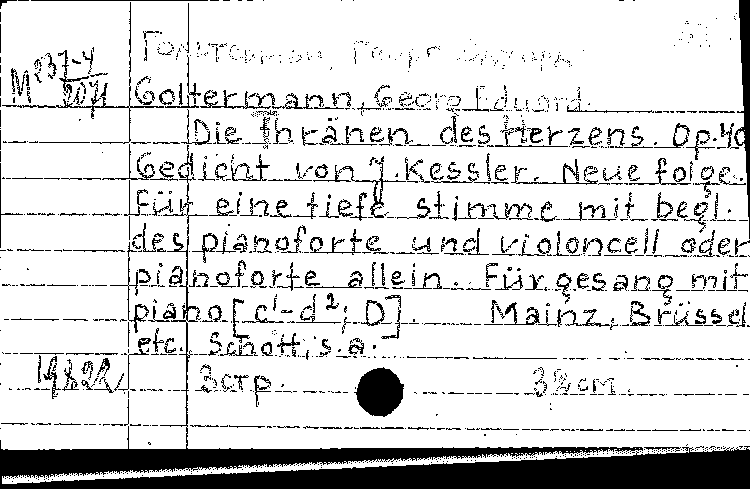 Гольтерман, Георг Эдуард
М 237-4
2071
Goltermann, Georg Eduard.
Die Thränen des Herzens. Op. 40
Gedicht von J. Kessler. Neue folge.
Für eine tiefe stimme mit begl.
des pianoforte und violoncell oder
pianoforte allein. Für gesang mit
piano [c¹-d²; D]. Mainz, Brüssel
etc., Schott, s.a.
3 стр. 32 см.